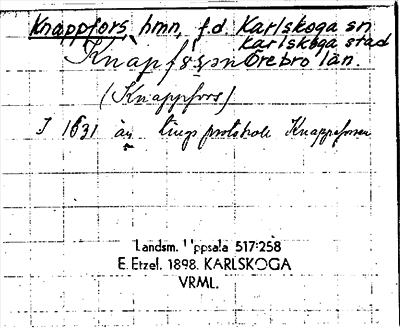 Knappfors hmn, f.d. Karlskoga sn
Karlskoga stad
Örebro län.
(Knappfors)
I 1631 års tings protokoll Knappeforsen
Landsm. Uppsala 517:258
E. Etzel. 1898. KARLSKOGA
VRML.